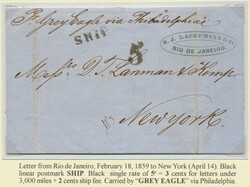 Pr Grey Eagle via Philadelphia
SHIP
5
R. J. LACKEMANN & Co
RIO DE JANEIRO.
Messrs. D. T. Lanman & Kemp
New York.
Letter from Rio de Janeiro, February 18, 1859 to New York (April 14). Black
linear postmark SHIP. Black single rate of 5c = 3 cents for letters under
3,000 miles + 2 cents ship fee. Carried by "GREY EAGLE" via Philadelphia.